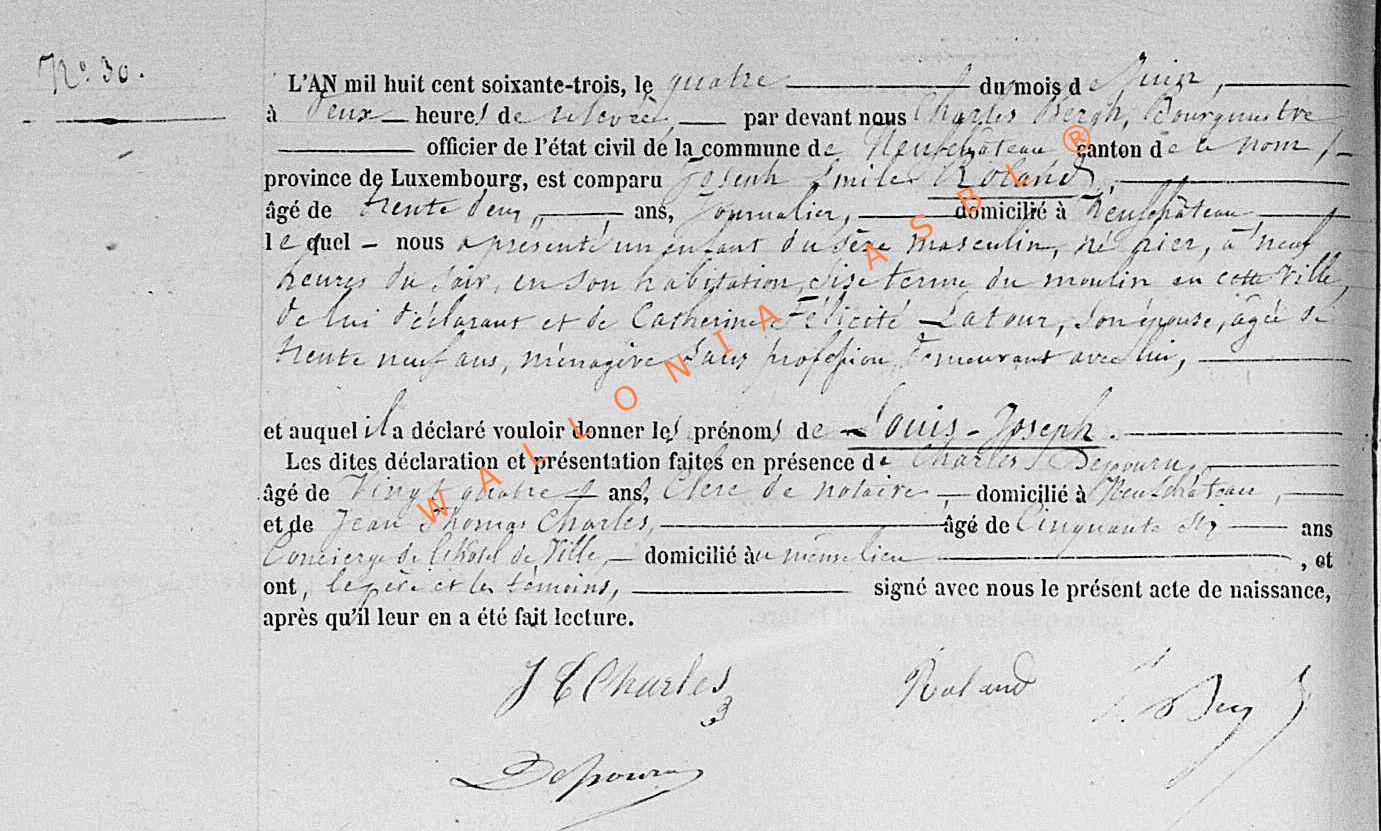 N° 30.
L'AN mil huit cent soixante-trois, le quatre du mois de Juin,
à deux heures de relevée, par devant nous Charles Bergh, Bourgmestre
officier de l'état civil de la commune de Neufchâteau canton de ce nom,
province de Luxembourg, est comparu Joseph Emile Roland,
âgé de trente deux, ans, Journalier, domicilié à Neufchâteau
lequel nous a présenté un enfant du sèxe masculin, né hier, à neuf
heures du soir, en son habitation, sise terme du moulin en cette ville,
de lui déclarant et de Catherine Félicité Latour, son épouse, âgée de
trente neuf ans, ménagère sans profession, demeurant avec lui,
et auquel il a déclaré vouloir donner les prénoms de Louis-Joseph.
Les dites déclaration et présentation faites en présence de Charles
âgé de Vingt quatre ans, Clerc de notaire, domicilié à Neufchâteau,
et de Jean Thomas Charles, âgé de Cinquante six ans
Concierge de l'hôtel de Ville, domicilié au même lieu, et
ont, le père et les témoins, signé avec nous le présent acte de naissance,
après qu'il leur en a été fait lecture.
J T Charles
Roland
WALLONIA ASBL ®